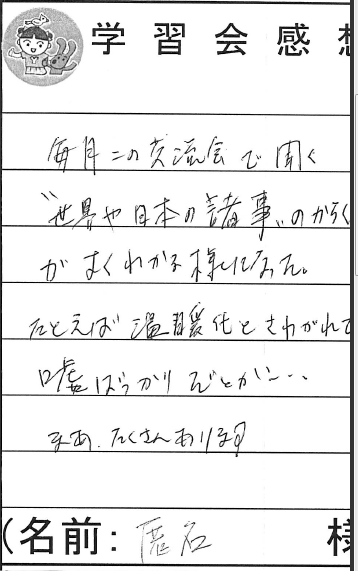 学習会感想
毎月この交流会で聞く
“世界や日本の諸事”のからく
がよくわかる様になった。
たとえば温暖化とさわがれて
嘘ばっかりだとか…
まあ、たくさんあります
(名前: 匿名 様